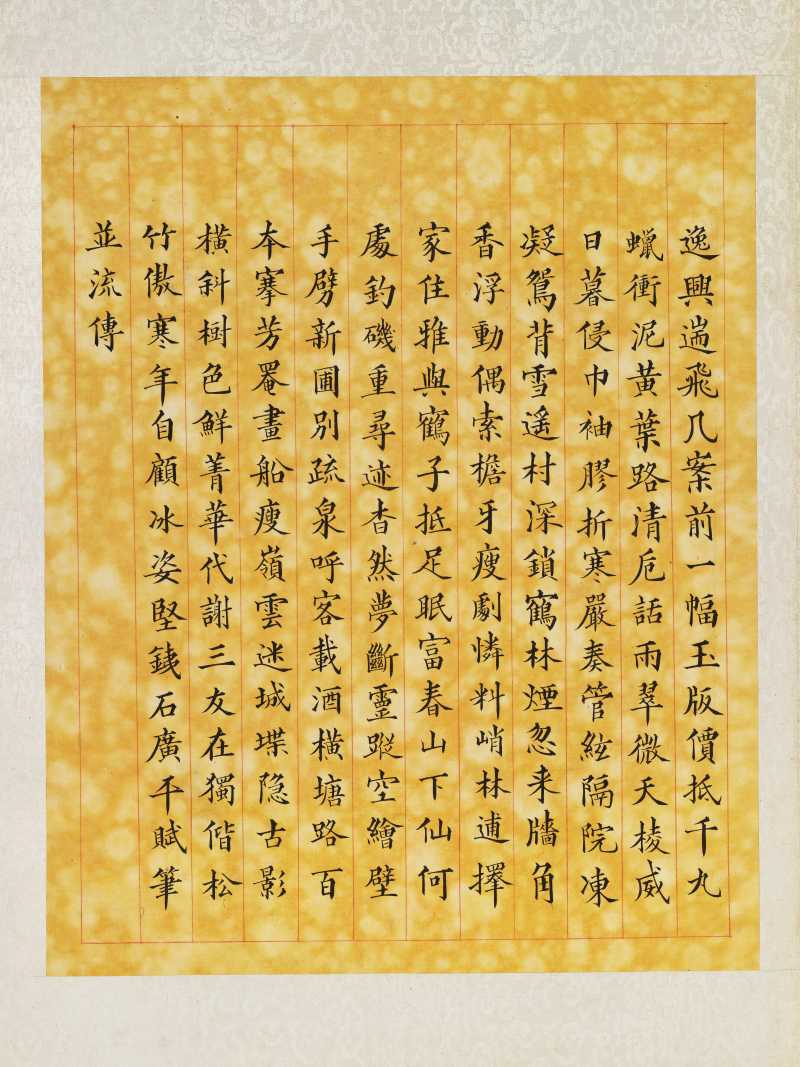 逸興遄飛几案前一幅玉版價抵千九
蠟衝泥黃葉路清卮話雨翠微天棱威
日暮侵巾袖膠折寒嚴奏管絃隔院凍
凝鴛背雪遥村深鎖寉林煙忽来牆角
香浮動偶索檐牙瘦劇憐料峭林逋擇
家住雅與鶴子抵足眠富春山下仙何
處釣磯重尋迹杳然夢斷靈蹤空繪壁
手劈新圃別疏泉呼客載酒橫塘路百
本搴芳罨畫船瘦嶺雲迷城堞隐古影
橫斜樹色鮮菁華代謝三友在獨偕松
竹傲寒年自顧冰姿堅鐵石廣平賦筆
並流傳